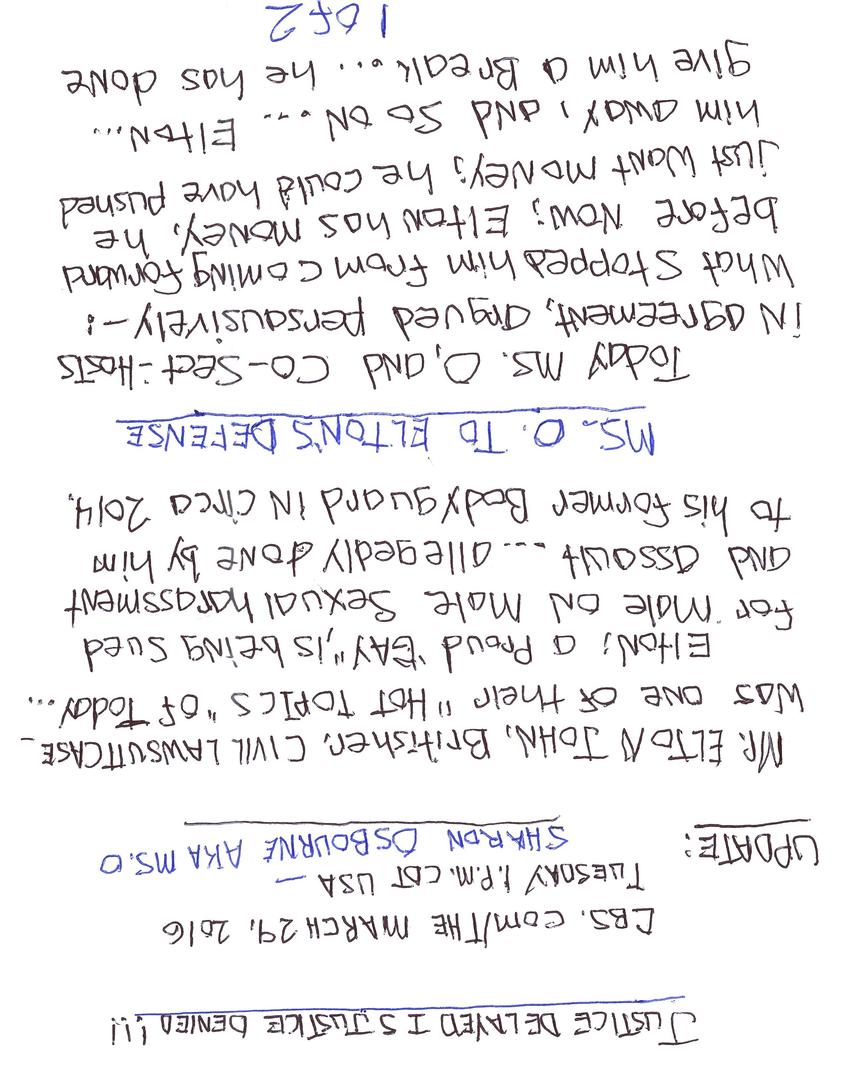 JUSTICE DELAYED IS JUSTICE DENIED !!!
CBS. COM/THE MARCH 29, 2016
TUESDAY 1.P.M. CDT USA –
UPDATE: SHARON OSBOURNE AKA MS.O
MR. ELTON JOHN, Britisher, CIVIL LAWSUITCASE–
WAS ONE OF their "HOT TOPICS" OF Today...
Elton; a Proud "GAY", is being sued
for Male on Male Sexual harassment
and assault ... allegedly done by him
to his former Bodyguard in circa 2014.
MS. O. TO ELTON'S DEFENSE
Today Ms. O, and CO-Sect-Hosts
in agreement, argued persausively-:
What Stopped him from coming forward
before Now; Elton has money, he
just want money; he could have pushed
him away, and So on ... Elton...
give him a Break ... he has done
1 of 2